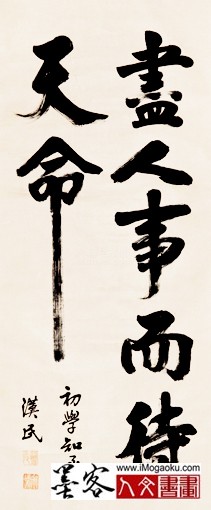 盡人事而待
天命
初學知
漢民
www.iMogaoku.com
墨客
人文書畫